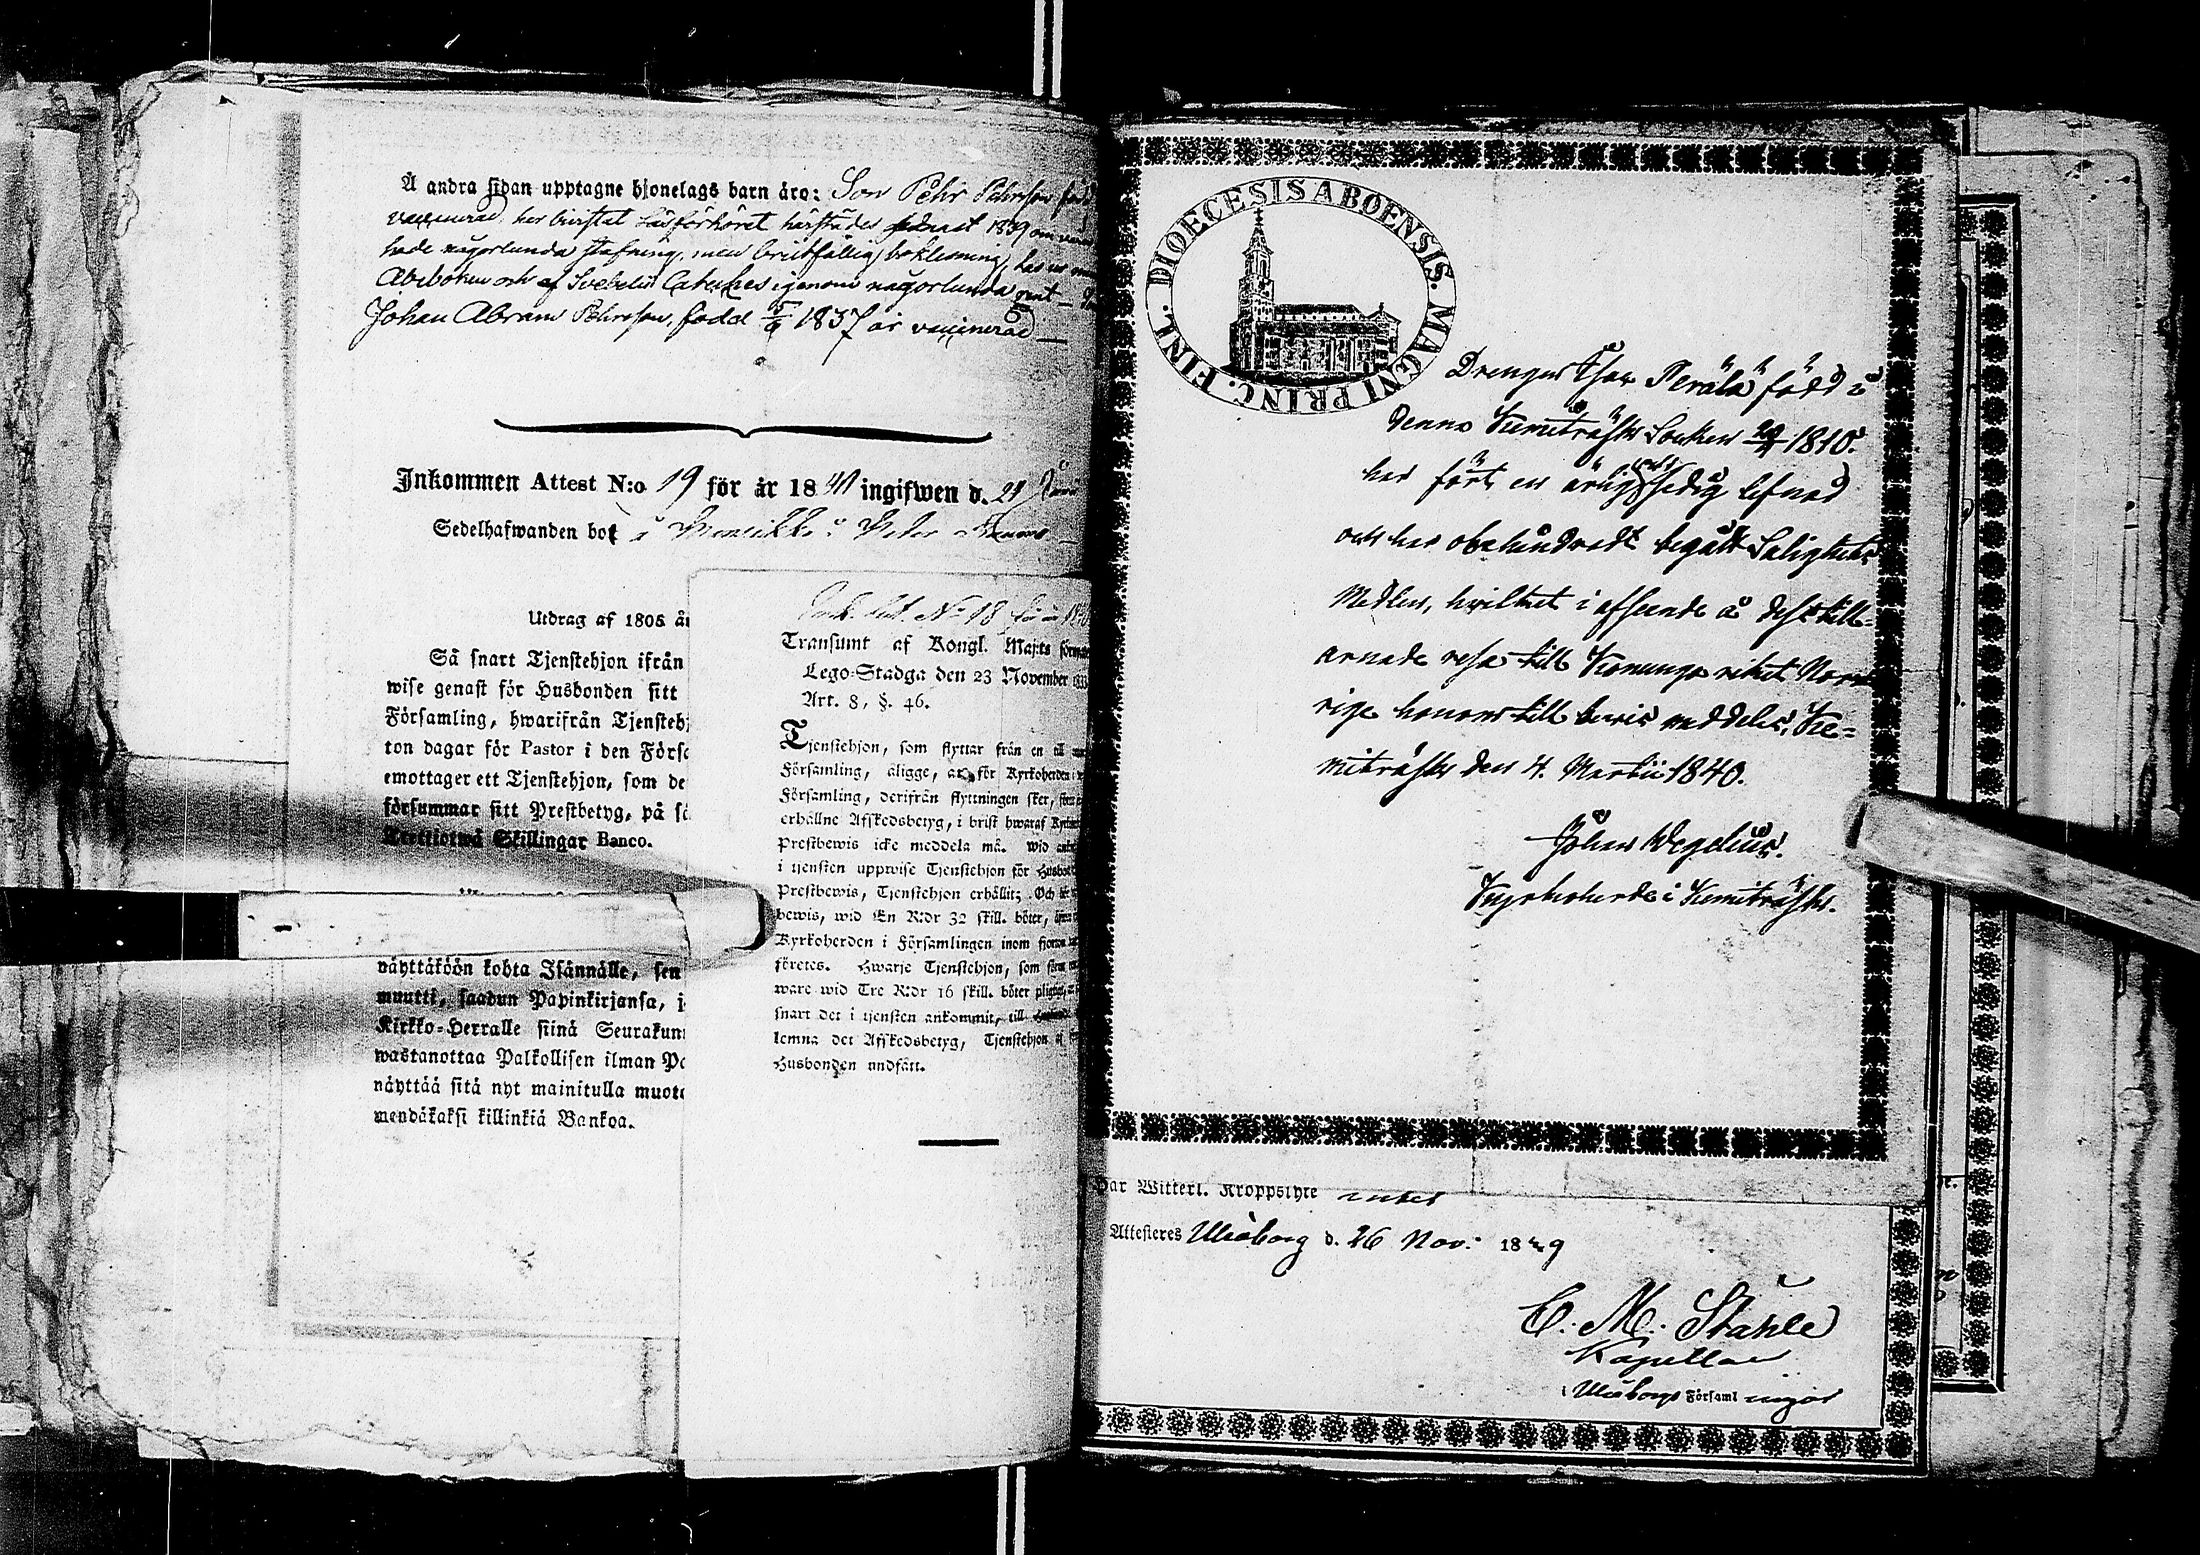 Å andra sidan upptagne hjonelags barn äro: Son Pehr Pehrsson född
vaccinerad, har bivistat Läsförhöret härstädes sednast 1839 om
hade någorlunda stafning, men bristfällig bokläsning, läs
Abcboken och af Svebelii Cateches igenom någorlunda
Johan Abram Pehrsson, född 1837 är vaccinerad
Inkommen Attest N:o 19 för år 1840 ingifwen d. 21
Sedelhafwanden bor i
Utdrag af 1805 år
Så snart Tjenstehjon ifrån
wise genast för Husbonden sitt
Församling, hwarifrån Tjensteh
ton dagar för Pastor i den Förs
emottager ett Tjenstehjon, som de
försummar sitt Prestbetyg, på s
Trettiotwå Skillingar Banco.
näyttäköön kohta Isännälle, sen
muutti, saadun Papinkirjansa, j
Kirkko-Herralle siinä Seurakun
wastanottaa Palkollisen ilman Pa
näyttää sitä nyt mainitulla muoto
mendäkaksi killinkiä Bankoa.
Ink. Att. No 18 för år 1840
Transumt af Kongl. Maj:ts förny
Lego-Stadga den 23 November
Art. 8, §. 46.
Tjenstehjon, som flyttar från en till
Församling, åligge, at för Kyrkoherden i
Församling, derifrån flyttningen sker,
erhållne Afskedsbetyg, i brist hwaraf
Prestbewis icke meddela må. Wid
i tjensten uppwise Tjenstehjon för Husbon
Prestbewis, Tjenstehjon erhållit; Och
bewis, wid En R:dr 32 skill. böter,
Kyrkoherden i Församlingen inom fjorton
företes. Hwarje Tjenstehjon, som
ware wid Tre R:dr 16 skill. böter pligtig,
snart det i tjensten ankommit, till
lemna det Afskedsbetyg, Tjenstehjon af
Husbonden undfått.
FINL. DIOECESIS ABOENSIS. MAGNI PRINC.
Drengen Isac Perälä född i
denna Kemiträsks Socken 1810.
har fört en ärlig och sedig lefnad
och har obehindradt begått Salighets
Medlen, hvilket i afseende å dess till-
ärnade resa till Konunga riket Nor-
rige honom till bevis meddelas, Ke-
miträsk den 4. Martii 1840.
Johan Wegelius.
Kyrkoherde i Kemiträsk.
Har Witterl. Kroppslyte intet
Attesteras Uleåborg d. 26 Nov. 1839
C. M. Ståhle
Kapellan
i Uleåborgs Församlingar